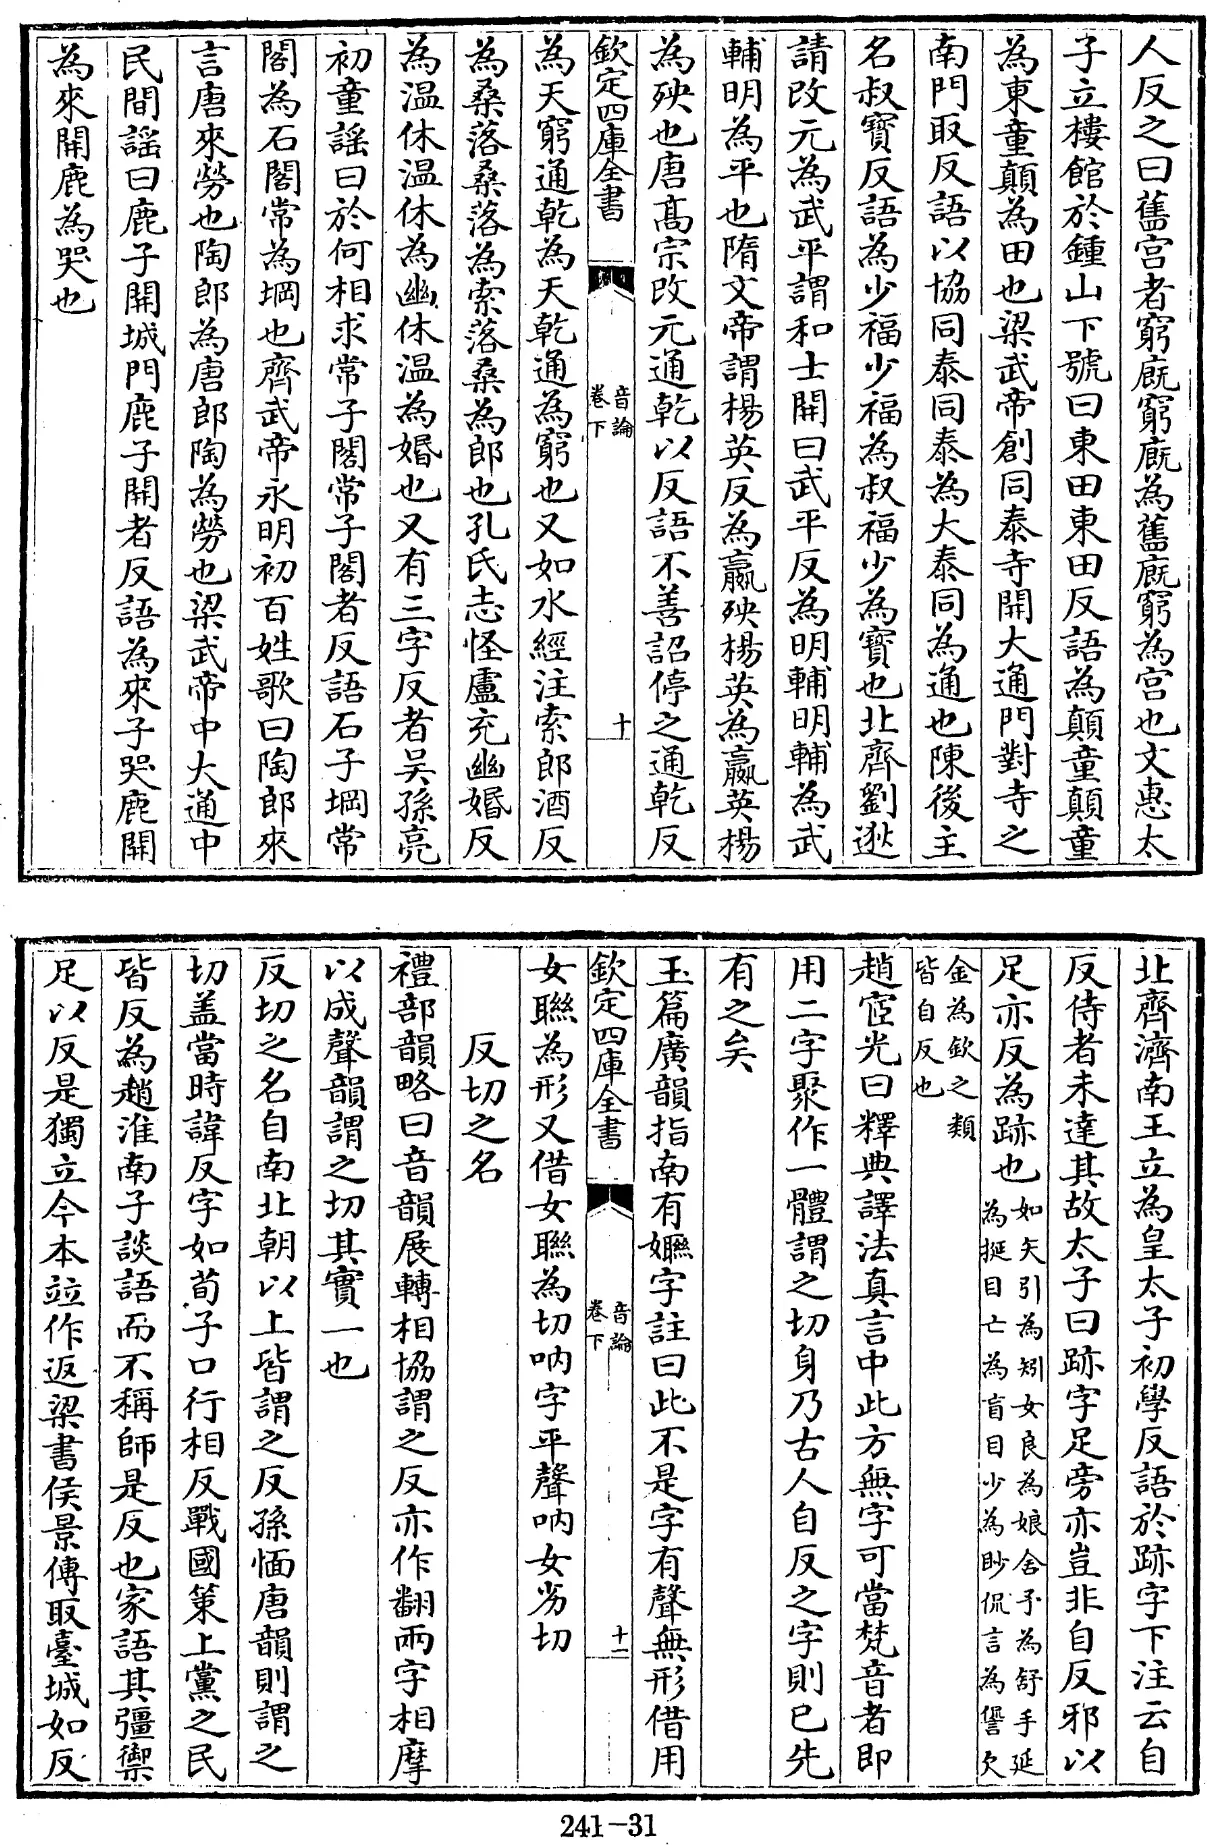 人反之曰舊宫者窮廐窮廐為舊廐窮為宫也文惠太
子立樓館於鍾山下號曰東田東田反語為顛童顛童
為東童顛為田也梁武帝創同泰寺開大通門對寺之
南門取反語以協同泰同泰為大泰同為通也陳後主
名叔寶反語為少福少福為叔福少為寶也北齊劉逖
請改元為武平謂和士開曰武平反為明輔明輔為武
輔明為平也隋文帝謂楊英反為嬴殃楊英為嬴英楊
為殃也唐髙宗改元通乾以反語不善詔停之通乾反
欽定四庫全書
音論
卷下
十
為天窮通乾為天乾通為窮也又如水經注索郎酒反
為桑落桑落為索落桑為郎也孔氏志怪盧充幽婚反
為温休温休為幽休温為婚也又有三字反者吴孫亮
初童謡曰於何相求常子閣常子閣者反語石子堈常
閣為石閣常為堈也齊武帝永明初百姓歌曰陶郎來
言唐來勞也陶郎為唐郎陶為勞也梁武帝中大通中
民間謡曰鹿子開城門鹿子開者反語為來子哭鹿開
為來開鹿為哭也
北齊濟南王立為皇太子初學反語於跡字下注云自
反侍者未達其故太子曰跡字足旁亦豈非自反邪以
足亦反為跡也如矢引為矧女良為娘舍予為舒手延
為挻目亡為盲目少為眇侃言為𠎝欠
金為欽之類
皆自反也
趙宧光曰釋典譯法真言中此方無字可當梵音者即
用二字聚作一體謂之切身乃古人自反之字則已先
有之矣
玉篇廣韻指南有㜻字註曰此不是字有聲無形借用
欽定四庫全書
音論
卷下
十一
女聯為形又借女聯為切吶字平聲吶女劣切
反切之名
禮部韻略曰音韻展轉相協謂之反亦作翻兩字相摩
以成聲韻謂之切其實一也
反切之名自南北朝以上皆謂之反孫愐唐韻則謂之
切盖當時諱反字如荀子口行相反戰國策上黨之民
皆反為趙淮南子談語而不稱師是反也家語其彊禦
足以反是獨立今本竝作返梁書侯景傳取臺城如反
241-31